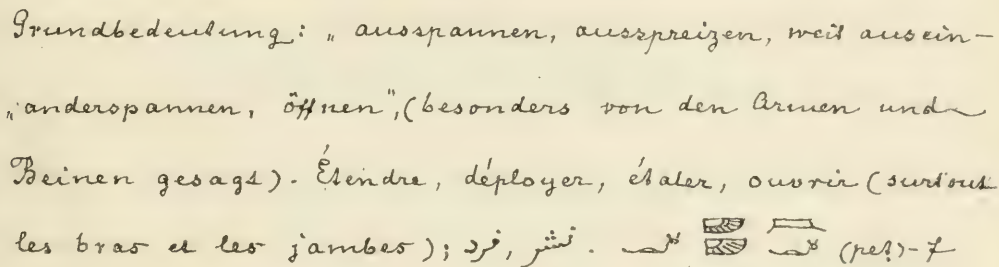 Grundbedeutung: „ausspannen, ausspreizen, weit ausein-
„anderspannen, öffnen", (besonders von den Armen und
Beinen gesagt). Étendre, déployer, étaler, ouvrir (surtout
les bras et les jambes); نشر, فرد.